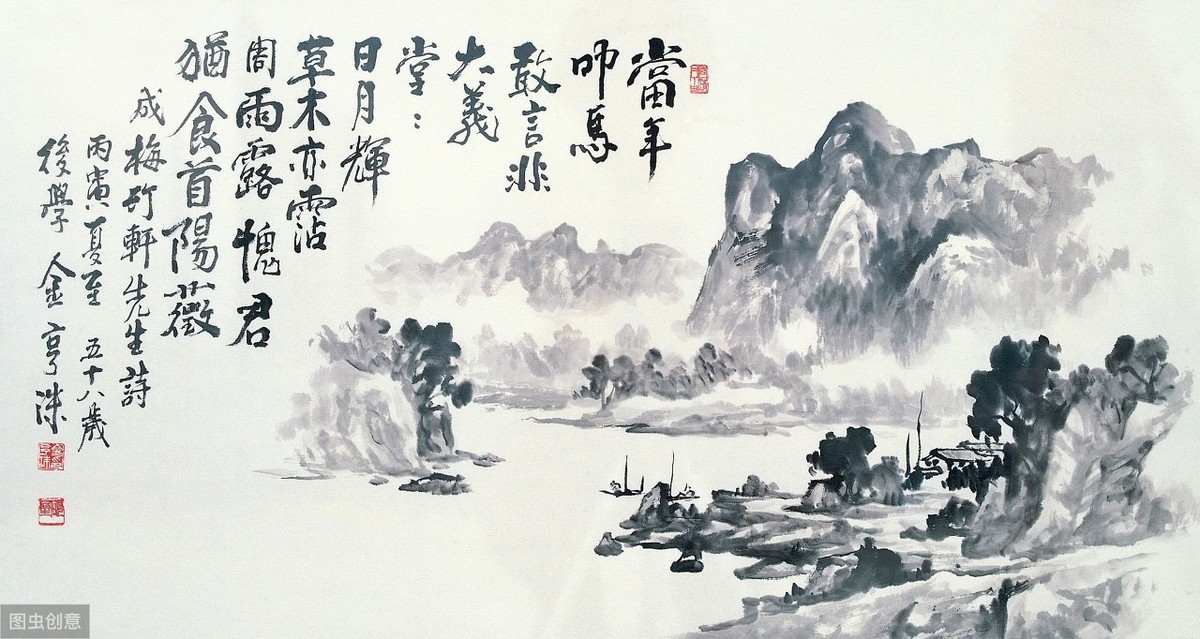 當年
叩馬
敢言非
大義
堂〻
日月輝
草木亦霑
周雨露愧君
猶食首陽薇
成梅竹軒先生詩
丙寅夏至 五十八歲
後學 金亨洙
图虫创意